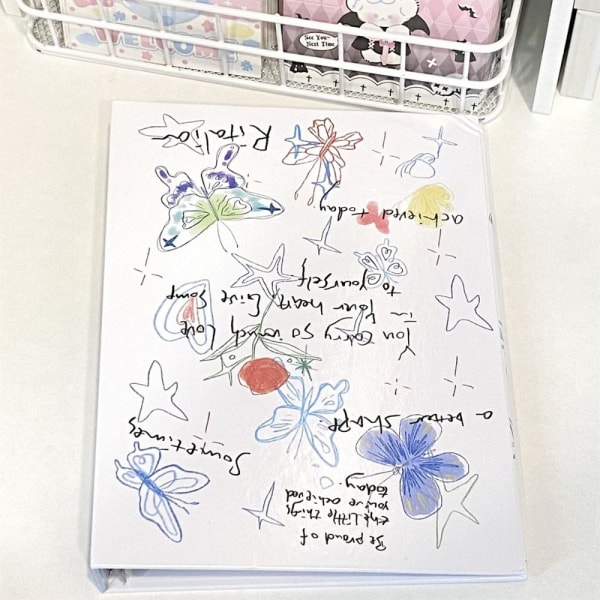 See You~
Next Time
Be proud of
the little things
you've achieved
today.
Sometimes
a better shape
You carry so much love
in
Your heart, Give some
to yourself
achieved today.
Ritalia